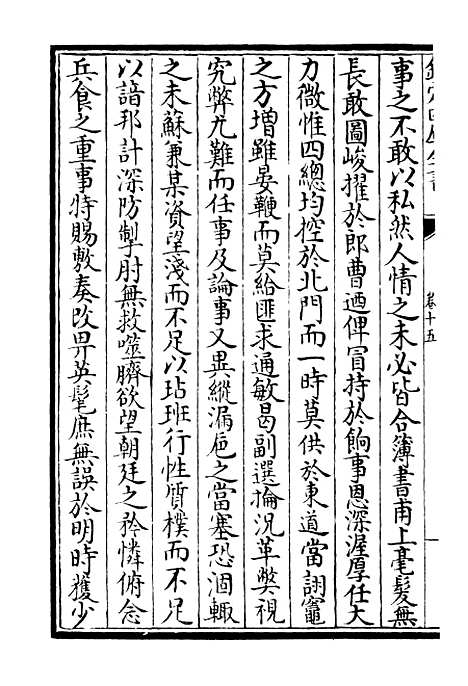 卷十五
事之不敢以私然人情之未必皆合簿書甫上毫髮無
長敢圖峻擢於郎曹迺俾冒持於餉事恩深渥厚任大
力微惟四總均控於北門而一時莫供於東道當詡竈
之方增雖晏鞭而莫給匪求通敏曷副選掄況革獘視
究弊尤難而任事及論事又異縱漏巵之當塞恐涸轍
之未蘇兼某資望淺而不足以玷班行性質樸而不足
以諳邦計深防掣肘無救噬臍欲望朝廷之矜憐俯念
兵食之重事特賜敷奏改畀英髦庶無誤於明時獲少